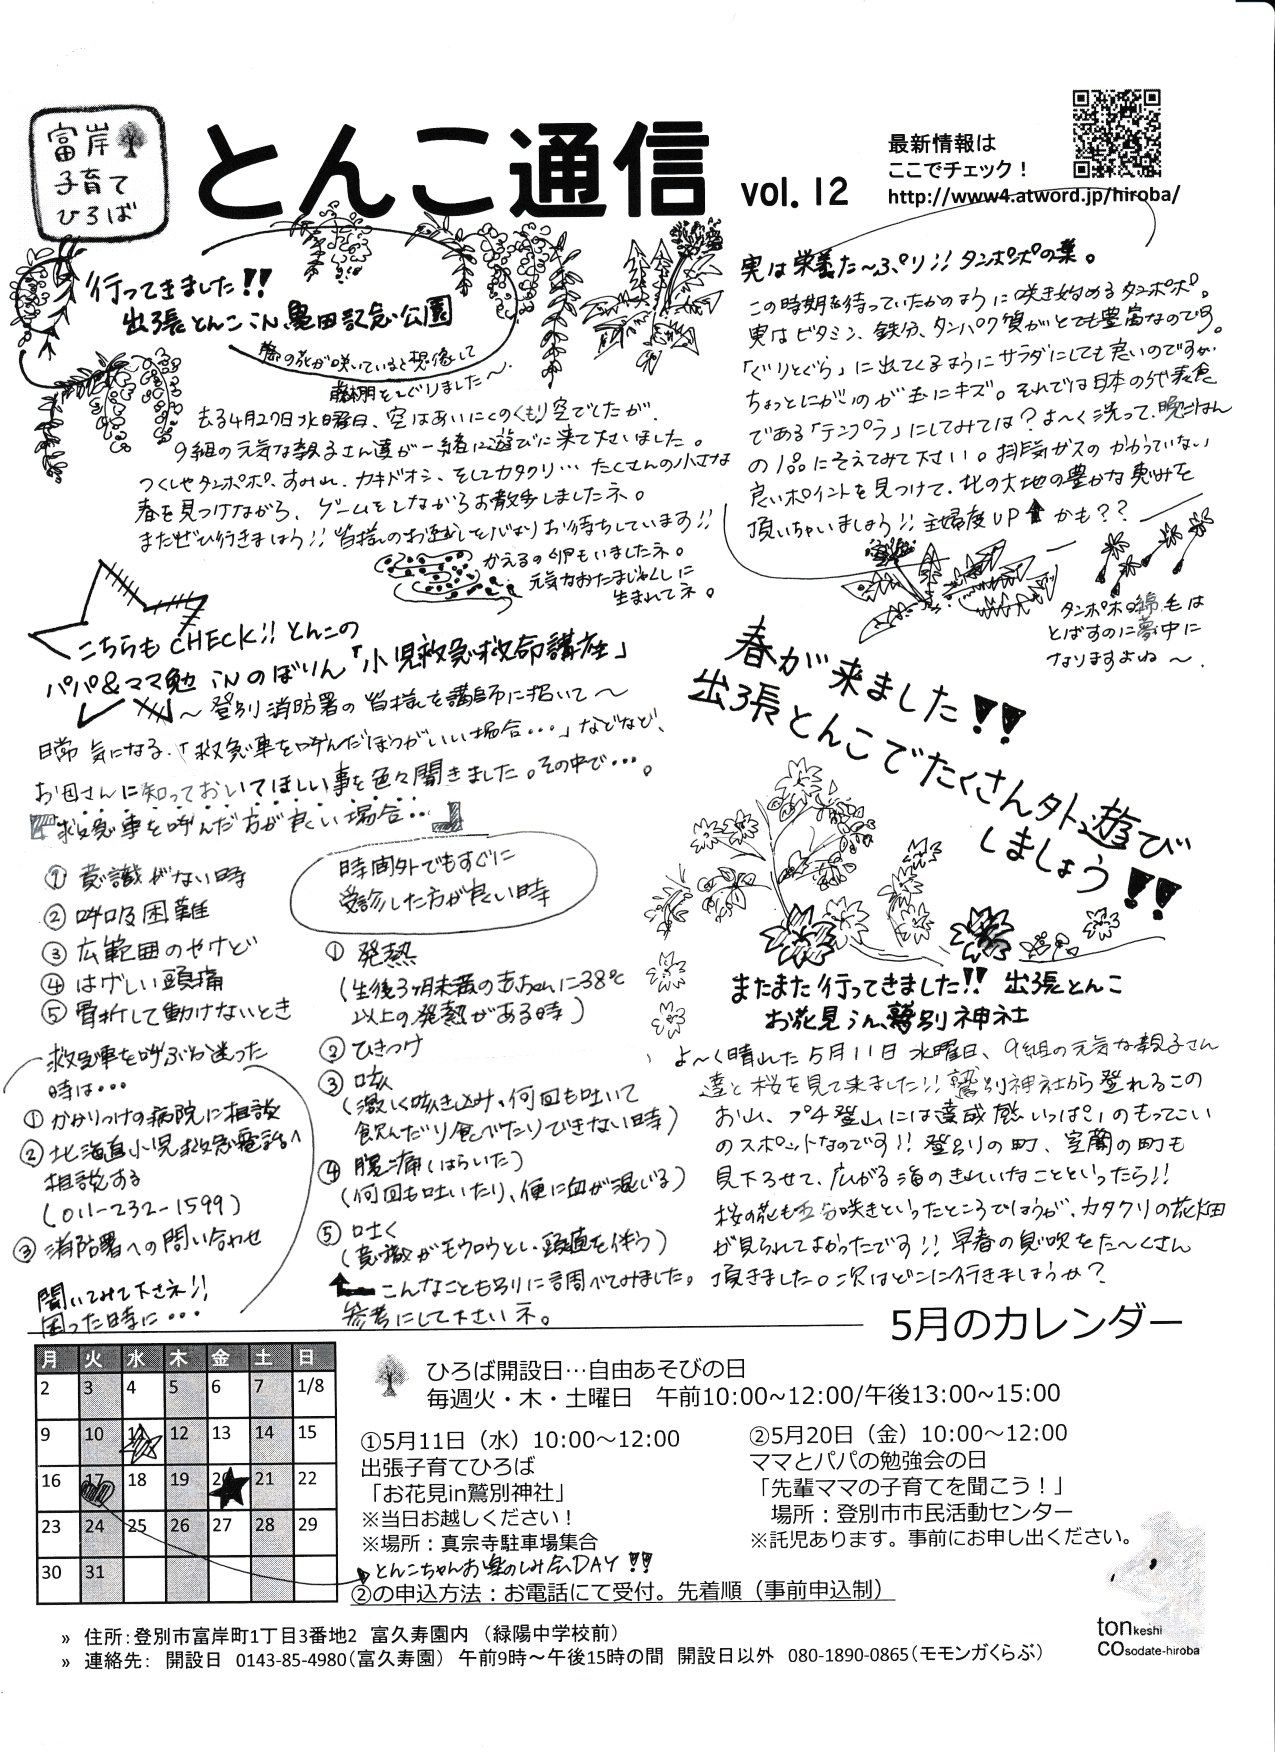 富岸
子育て
ひろば
とんこ通信 vol. 12
最新情報は
ここでチェック!
http://www4.atword.jp/hiroba/
行ってきました!!
出張とんこ in 亀田記念公園
藤の花が咲いていると想像して
藤棚をくぐりました〜。
去る4月27日水曜日、空はあいにくのくもり空でしたが、
9組の元気な親子さん達が一緒に遊びに来て下さいました。
つくしやタンポポ、すみれ、カキドオシ、そしてカタクリ…たくさんの小さな
春を見つけながら、ゲームをしながらお散歩しましたネ。
またぜひ行きましょう!!皆様のお越しをバッチリお待ちしています!!
かえるの卵もいましたネ。
元気なおたまじゃくしに
生まれてネ。
実は栄養た〜ぷり!!タンポポの葉。
この時期を待っていたかのように咲き始めるタンポポ。
実はビタミン、鉄分、タンパク質がとても豊富なのです。
「ぐりとぐら」に出てくるようにサラダにしても良いのですが、
ちょっとにがいのが玉にキズ。それでは日本の代表食
である「テンプラ」にしてみては?よ〜く洗って、晩ごはん
の1品にそえてみて下さい。排気ガスのかかっていない
良いポイントを見つけて、北の大地の豊かな恵みを
頂いちゃいましょう!!主婦度UP↑かも??
タンポポの綿毛は
とばすのに夢中に
なりますよね〜。
こちらもCHECK!!とんこの
パパ&ママ勉 inのぼりん「小児救急救命講座」
〜登別消防署の皆様を講師に招いて〜
日常気になる、「救急車を呼んだほうがいい場合…」などなど、
お母さんに知っておいてほしい事を色々聞きました。その中で…。
「救急車を呼んだ方が良い場合…」
① 意識がない時
② 呼吸困難
③ 広範囲のやけど
④ はげしい頭痛
⑤ 骨折して動けないとき
救急車を呼ぶか迷った
時は…
① かかりつけの病院に相談
② 北海道小児救急電話へ
相談する
(011-232-1599)
③ 消防署への問い合わせ
聞いてみて下さネ!!
困った時に…
時間外でもすぐに
受診した方が良い時
① 発熱
(生後3ヶ月未満の赤ちゃんに38℃
以上の発熱がある時)
② ひきつけ
③ 咳
(激しく咳き込み、何回も吐いて
飲んだり食べたりできない時)
④ 腹痛(はらいた)
(何回も吐いたり、便に血が混じる)
⑤ 吐く
(意識がモウロウとし、頭痛を伴う)
こんなことも別に調べてみました。
参考にして下さいネ。
春が来ました!!
出張とんこでたくさん外遊び
しましょう!!
またまた行ってきました!!出張とんこ
お花見 in 鷲別神社
よ〜く晴れた5月11日水曜日、9組の元気な親子さん
達と桜を見て来ました!!鷲別神社から登れるこの
お山、プチ登山には達成感いっぱい のもってこい
のスポットなのです!!登別の町、室蘭の町も
見下ろせて、広がる海のきれいなことといったら!!
桜の花も五分咲きといったところでしょうが、カタクリの花畑
が見られてよかったです!!早春の息吹をた〜くさん
頂きました。次はどこに行きましょうか?
5月のカレンダー
月 火 水 木 金 土 日
2 3 4 5 6 7 1/8
9 10 11 12 13 14 15
16 17 18 19 20 21 22
23 24 25 26 27 28 29
30 31
ひろば開設日…自由あそびの日
毎週火・木・土曜日 午前10:00~12:00/午後13:00~15:00
①5月11日(水)10:00~12:00
出張子育てひろば
「お花見in鷲別神社」
※当日お越しください!
※場所:真宗寺駐車場集合
とんこちゃんお楽しみ会DAY!!
②5月20日(金)10:00~12:00
ママとパパの勉強会の日
「先輩ママの子育てを聞こう!」
場所:登別市市民活動センター
※託児あります。事前にお申し出ください。
②の申込方法:お電話にて受付。先着順(事前申込制)
» 住所:登別市富岸町1丁目3番地2 富久寿園内 (緑陽中学校前)
» 連絡先: 開設日 0143-85-4980(富久寿園) 午前9時~午後15時の間 開設日以外 080-1890-0865(モモンガくらぶ)
tonkeshi
COsodate-hiroba